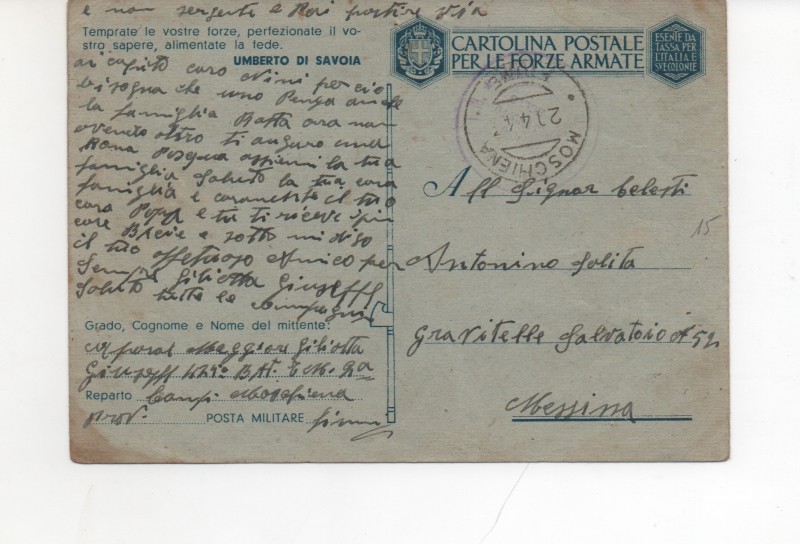 e non sergente e poi partire via
Temprate le vostre forze, perfezionate il vo-
stro sapere, alimentate la fede.
UMBERTO DI SAVOIA
ai capito caro Nini per cio
bisogna che uno penza anche
la famiglia Basta ora non
avendo altro ti auguro una
Bona Pasqua assiemi la tua
famiglia Saluto la tua cara
famiglia e il tuo
caro Papà e tu ti riceve i più
care Bacie e sotto mi dico
il tuo Affettuoso Amico per
Sempre Giliotta Giuseppe
Saluto tutte le compagni
Grado, Cognome e Nome del mittente:
Caporal Maggiore Giliotta
Giuseppe BAT.
Reparto Moschiena
Prov. POSTA MILITARE Fiume
CARTOLINA POSTALE
PER LE FORZE ARMATE
ESENTE DA
TASSA PER
L'ITALIA E
SVE COLONIE
MOSCHIENA
All Signor Celesti
15
Antonino Solita
Gravitelle Salvatoio N° 52
Messina